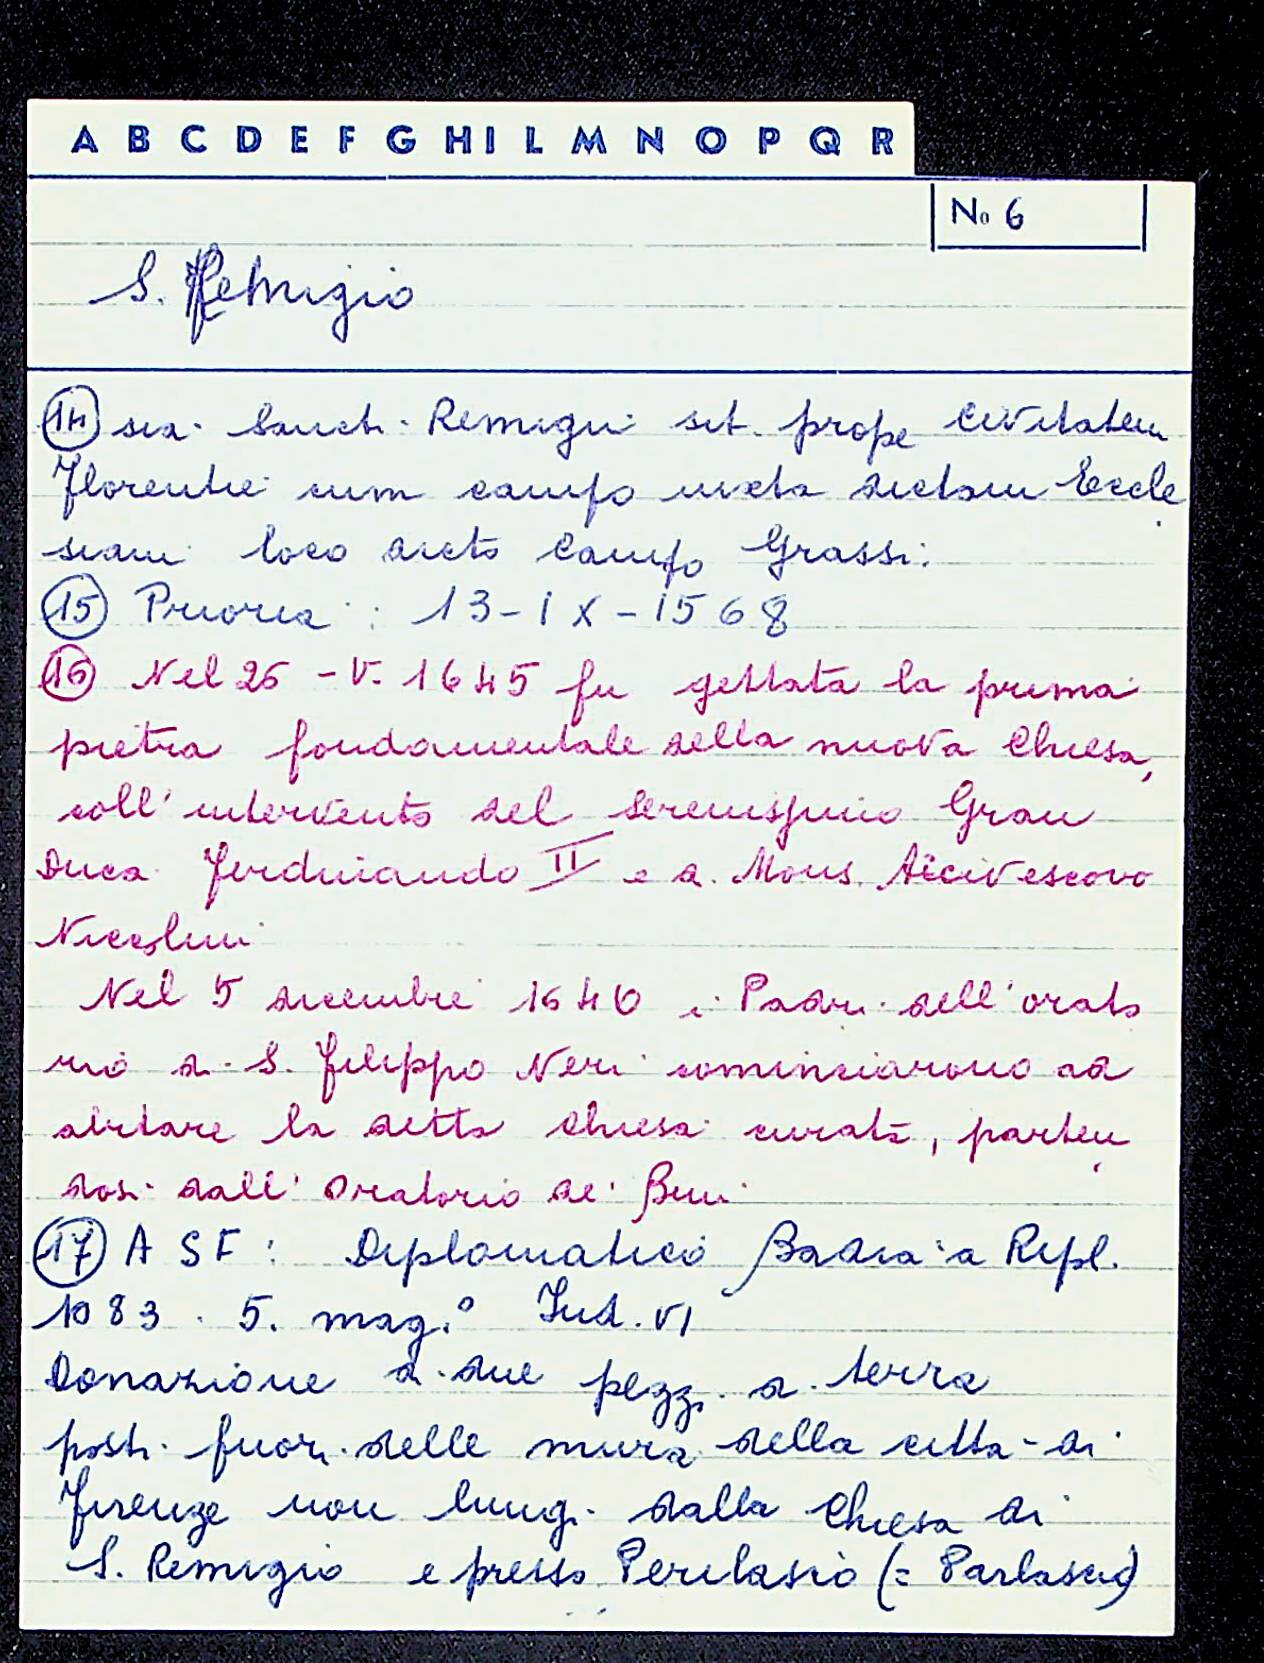 A B C D E F G H I L M N O P Q R
No 6
S. Remigio
14 sia Sancti Remigii sit. prope Civitatem
Florentie cum campo iuxta dictam Eccle
siam loco dicto Campo Grassi.
15 Prioria: 13-IX-1568
16 Nel 26 -V- 1645 fu gettata la prima
pietra fondamentale della nuova Chiesa,
coll'intervento del Serenissimo Gran
Duca Ferdinando II e di Mons. Arcivescovo
Niccolini
Nel 5 dicembre 1640 i Padri dell'orato
rio di S. Filippo Neri cominciarono ad
abitare la detta chiesa curata, parten
dosi dall'Oratorio de' Bini
17 A S F: Diplomatico Badia a Ripl.
1083. 5. mag.° Ind. VI
Donazione di due pezzi di terra
posti fuori delle mura della città di
Firenze non lungi dalla Chiesa di
S. Remigio e presso Perilasio (= Parlascio)